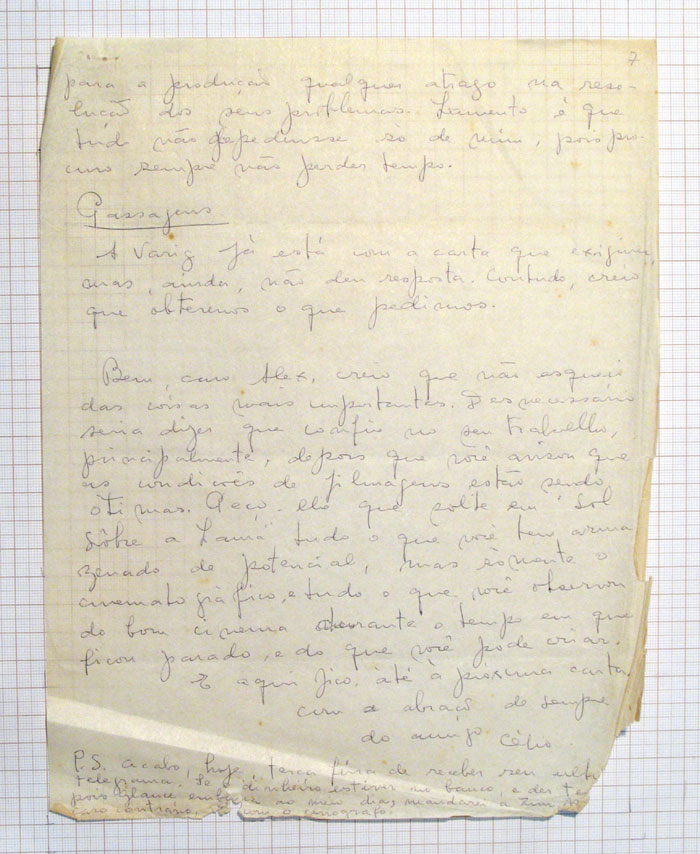 7
para a produção qualquer atraso na reso-
lução dos seus problemas. Lamento é que
tudo não dependesse só de mim, pois pro-
curo sempre não perder tempo.
Passagens
A Varig já está com a carta que exigiu,
mas, ainda, não deu resposta. Contudo, creio
que obteremos o que pedimos.
Bem, caro Alex, creio que não esqueci
das coisas mais importantes. Desnecessário
seria dizer que confio no seu trabalho,
principalmente, depois que você avisou que
as condições de filmagens estão sendo
ótimas. Peço-lhe que solte em "Sol
Sôbre a Lama" tudo o que você tem arma
zenado de potencial, mas sòmente o
cinematográfico, e tudo o que você observou
do bom cinema durante o tempo em que
ficou parado, e do que você pode criar.
E aqui fico até à próxima carta
com o abraço de sempre
do amigo Célio.
P.S. Acabo, hoje, terça feira de receber seu
telegrama. Se dinheiro estiver no banco, e
pois no meio dia, mandarei a
caso contrário, o cinógrafo.